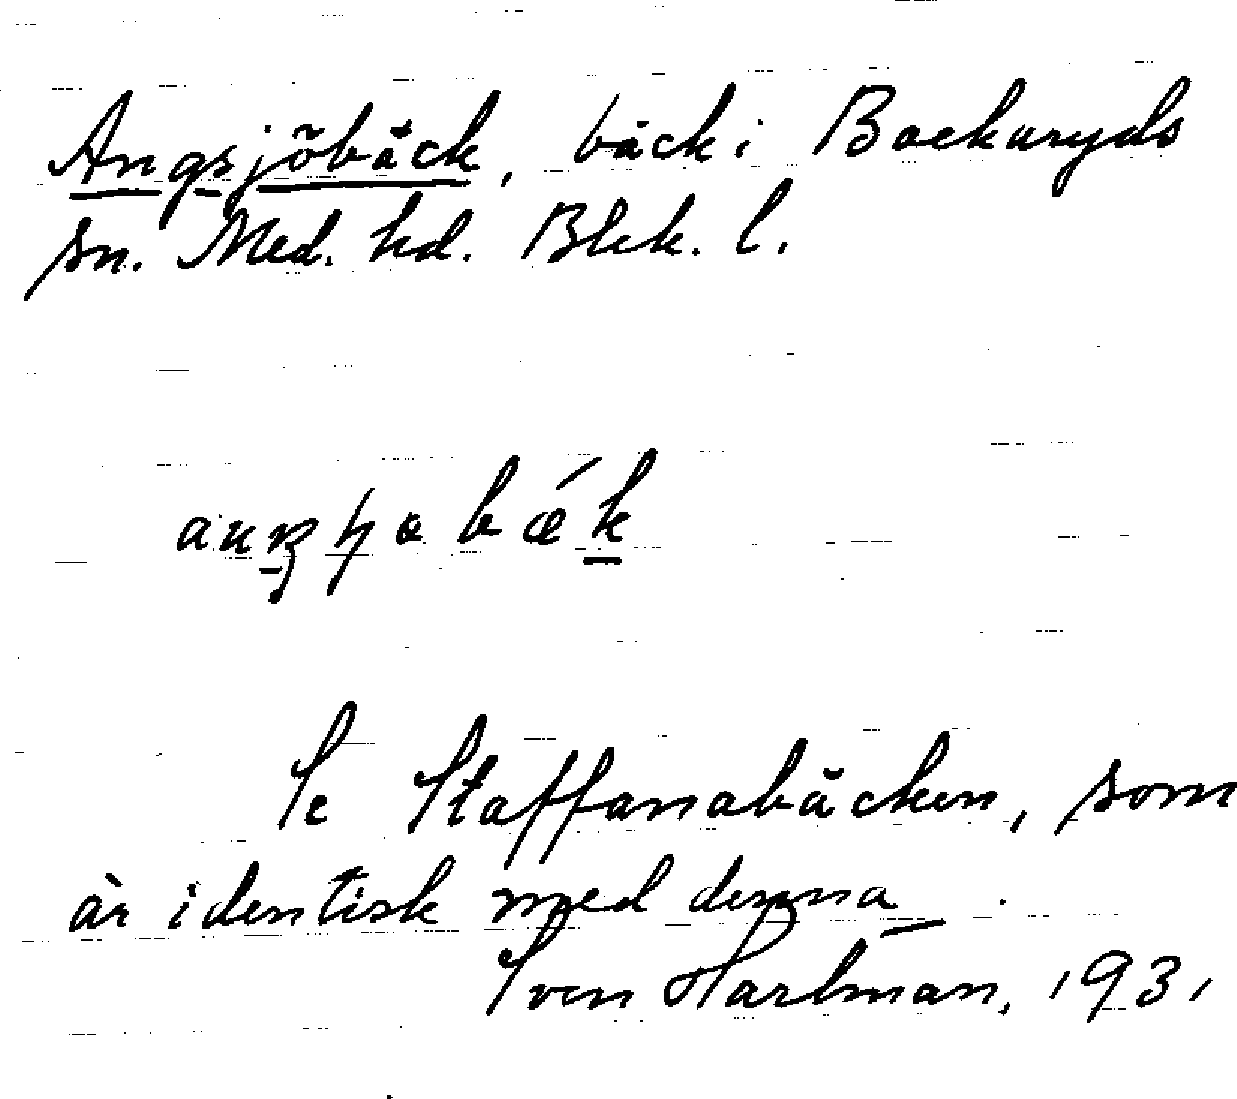 Angsjöbäck, bäck i Backaryds
sn. Med. hd. Blek. l.
Se Staffanabäcken, som
är identisk med denna.
Sven Hartman, 1931